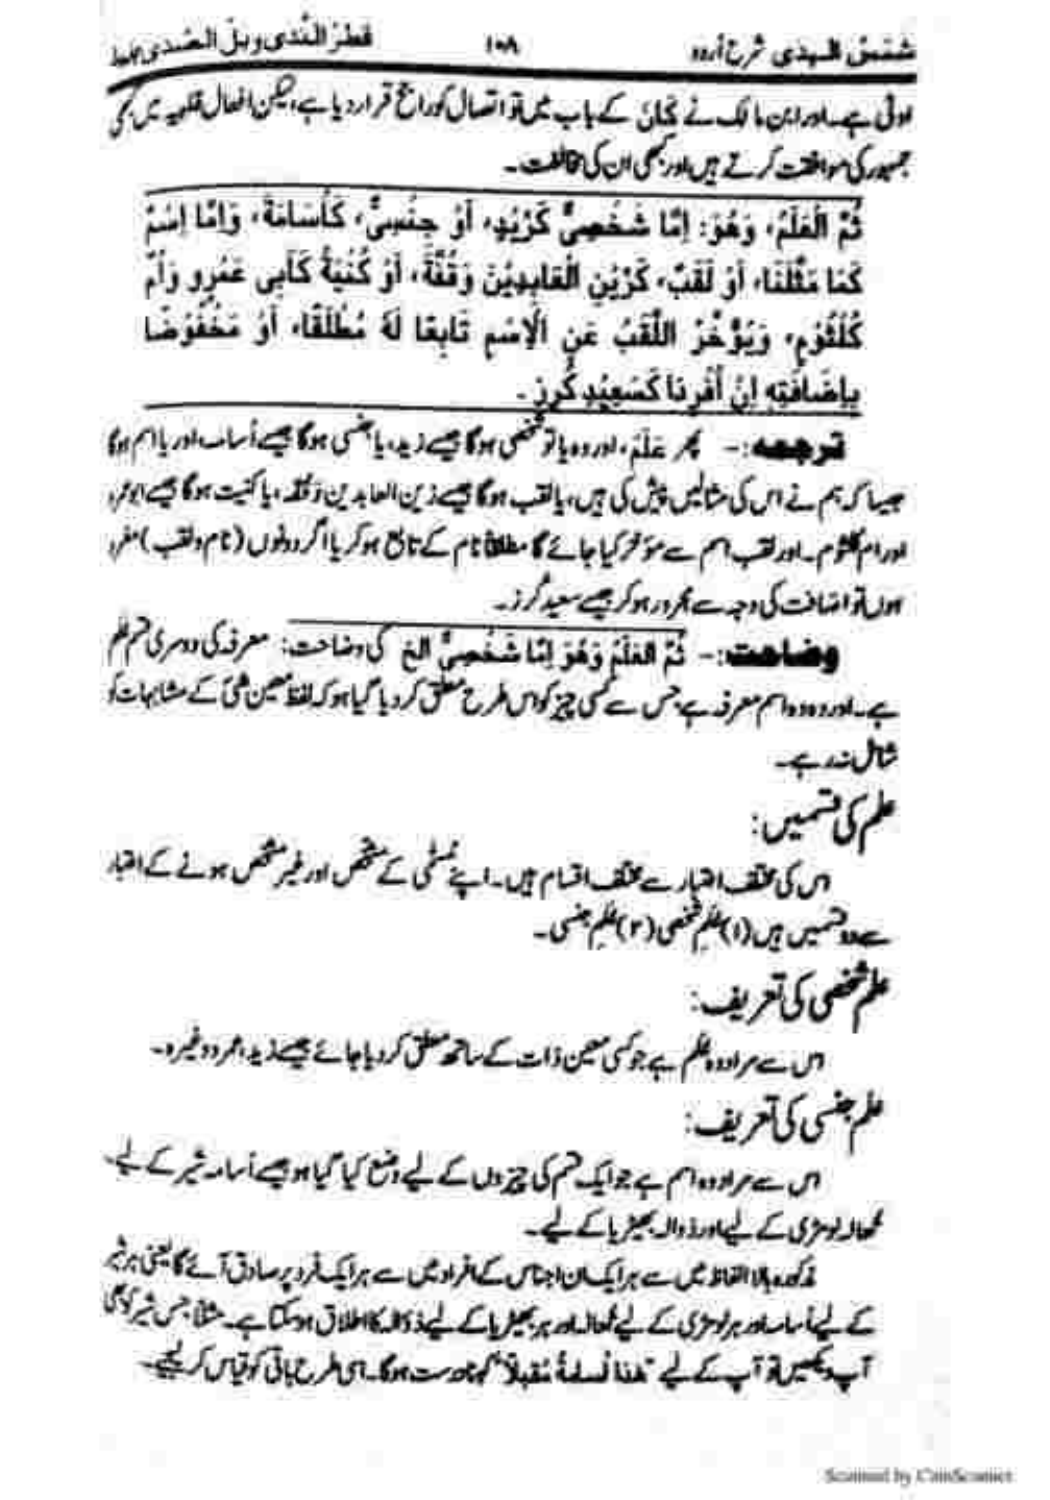 شمس الہدی شرح اردو ۱۰۸ قطر الندی وبل الصدی
اولیٰ ہے۔ اور ابن مالک نے کَانَ کے باب میں تو اتصال کو راجح قرار دیا ہے، لیکن افعال قلوبیہ میں کبھی
جمہور کی موافقت کرتے ہیں اور کبھی ان کی مخالفت۔
ثُمَّ الْعَلَمُ، وَهُوَ: اِمَّا شَخْصِيٌّ كَزَيْدٍ، أَوْ جِنْسِيٌّ، كَأُسَامَةَ، وَاِمَّا اِسْمٌ
كَمَا مَثَّلْنَا، أَوْ لَقَبٌ، كَزَيْنِ الْعَابِدِيْنَ وَقُفَّةَ، أَوْ كُنْيَةٌ كَأَبِى عَمْرٍو وَأُمِّ
كُلْثُوْمٍ، وَيُؤَخَّرُ اللَّقَبُ عَنِ الْاِسْمِ تَابِعًا لَهُ مُطْلَقًا، أَوْ مَخْفُوْضًا
بِاِضَافَتِهِ اِنْ أُفْرِدَا كَسَعِيْدِ كُرْزٍ۔
ترجمہ:- پھر عَلَمْ، اور وہ یا تو شخصی ہوگا جیسے زید، یا جنسی ہوگا جیسے أسامہ، اور یا اسم ہوگا
جیسا کہ ہم نے اس کی مثالیں پیش کی ہیں، یا لقب ہوگا جیسے زین العابدین و قفہ، یا کنیت ہوگا جیسے ابو عمرو
اور ام کلثوم۔ اور لقب اسم سے مؤخر کیا جائے گا مطلقاً نام کے تابع ہو کر یا اگر دونوں (نام و لقب) مفرد
ہوں تو اضافت کی وجہ سے مجرور ہو کر جیسے سعید کُرز۔
وضاحت:- ثُمَّ الْعَلَمُ وَهُوَ اِمَّا شَخْصِيٌّ الخ کی وضاحت: معرفہ کی دوسری قسم علم
ہے۔ اور وہ وہ اسم معرفہ ہے جس سے کسی چیز کو اس طرح معلق کر دیا گیا ہو کہ لفظ معین شیٔ کے مشابہات کو
شامل نہ رہے۔
علم کی قسمیں:
اس کی مختلف اعتبار سے مختلف اقسام ہیں۔ اپنے مُسمّٰی کے مشخص اور غیر مشخص ہونے کے اعتبار
سے دو قسمیں ہیں (۱) علمِ شخصی (۲) علمِ جنسی۔
علمِ شخصی کی تعریف:
اس سے مراد وہ علم ہے جو کسی معین ذات کے ساتھ معلق کر دیا جائے جیسے زید، عمرو وغیرہ۔
علمِ جنسی کی تعریف:
اس سے مراد وہ اسم ہے جو ایک قسم کی چیزوں کے لیے وضع کیا گیا ہو جیسے أسامہ شیر کے لیے،
ثعالہ لومڑی کے لیے اور ذوالہ بھیڑیا کے لیے۔
مذکورہ بالا الفاظ میں سے ہر ایک ان اجناس کے افراد میں سے ہر ایک فرد پر صادق آئے گا یعنی ہر شیر
کے لیے أسامہ اور ہر لومڑی کے لیے ثعالہ اور ہر بھیڑیا کے لیے ذوالہ کا اطلاق ہو سکتا ہے۔ مثلاً جس شیر کو بھی
آپ دیکھیں تو آپ کے لیے "هٰذَا أُسَامَةُ مُقْبِلاً" کہنا درست ہوگا۔ اسی طرح باقی کو قیاس کر لیجیے۔
Scanned by CamScanner